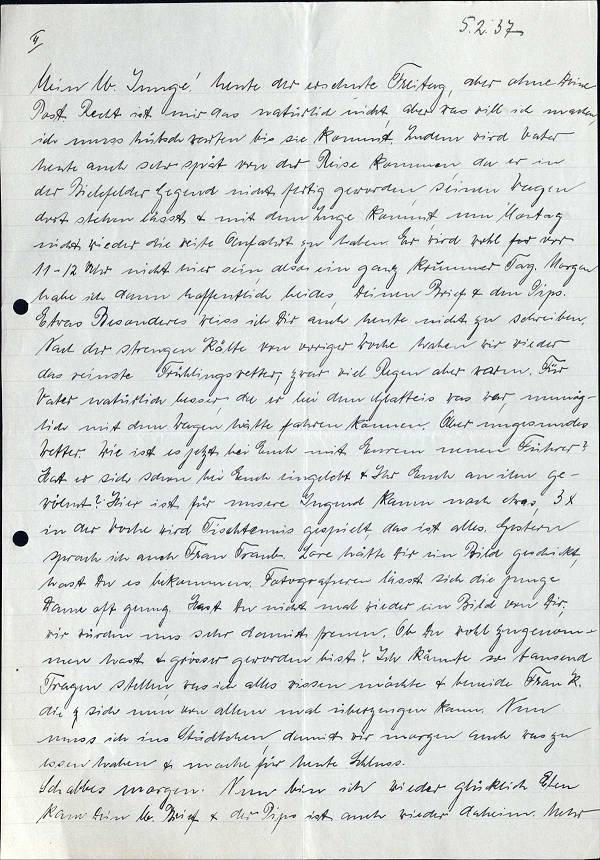 II
5.2.37
Mein lb. Junge! Heute der ersehnte Freitag, aber ohne Deine
Post. Recht ist mir das natürlich nicht, aber was will ich machen,
ich muss hübsch warten bis sie kommt. Zudem wird Vater
heute auch sehr spät von der Reise kommen da er in
der Bielefelder Gegend nicht fertig geworden seinen Wagen
dort stehen lässt & mit dem Zuge kommt, um Montag
nicht wieder die weite Anfahrt zu haben. Er wird wohl vor
11-12 Uhr nicht hier sein, also ein ganz krummer Tag. Morgen
habe ich dann hoffentlich beides, Deinen Brief & den Pips.
Etwas Besonderes weiss ich Dir auch heute nicht zu schreiben.
Nach der strengen Kälte von voriger Woche haben wir wieder
das reinste Frühlingswetter, zwar viel Regen aber warm. Für
Vater natürlich besser, da er bei dem Glatteis was war, unmög-
lich mit dem Wagen hätte fahren können. Aber ungesundes
Wetter. Wie ist es jetzt bei Euch mit Eurem neuen Führer?
Hat er sich schon bei Euch eingelebt & Ihr Euch an ihn ge-
wöhnt? Hier ist für unsere Jugend kaum noch etwas, 3 x
in der Woche wird Tischtennis gespielt, das ist alles. Gestern
sprach ich auch Frau Traub. Lore hätte Dir ein Bild geschickt,
hast Du es bekommen. Fotografieren lässt sich die junge
Dame oft genug. Hast Du nicht mal wieder ein Bild von Dir,
wir würden uns sehr damit freuen. Ob Du wohl zugenom-
men hast & grösser geworden bist? Ich könnte so tausend
Fragen stellen, was ich alles wissen möchte & beneide Frau K.
die sich nun von allem mal überzeugen kann. Nun
muss ich ins Städtchen, damit wir morgen auch was zu
essen haben & mache für heute Schluss.
Schabbes morgen. Nun bin ich wieder glücklich. Eben
kam Dein lb. Brief & der Pips ist auch wieder daheim. Mehr